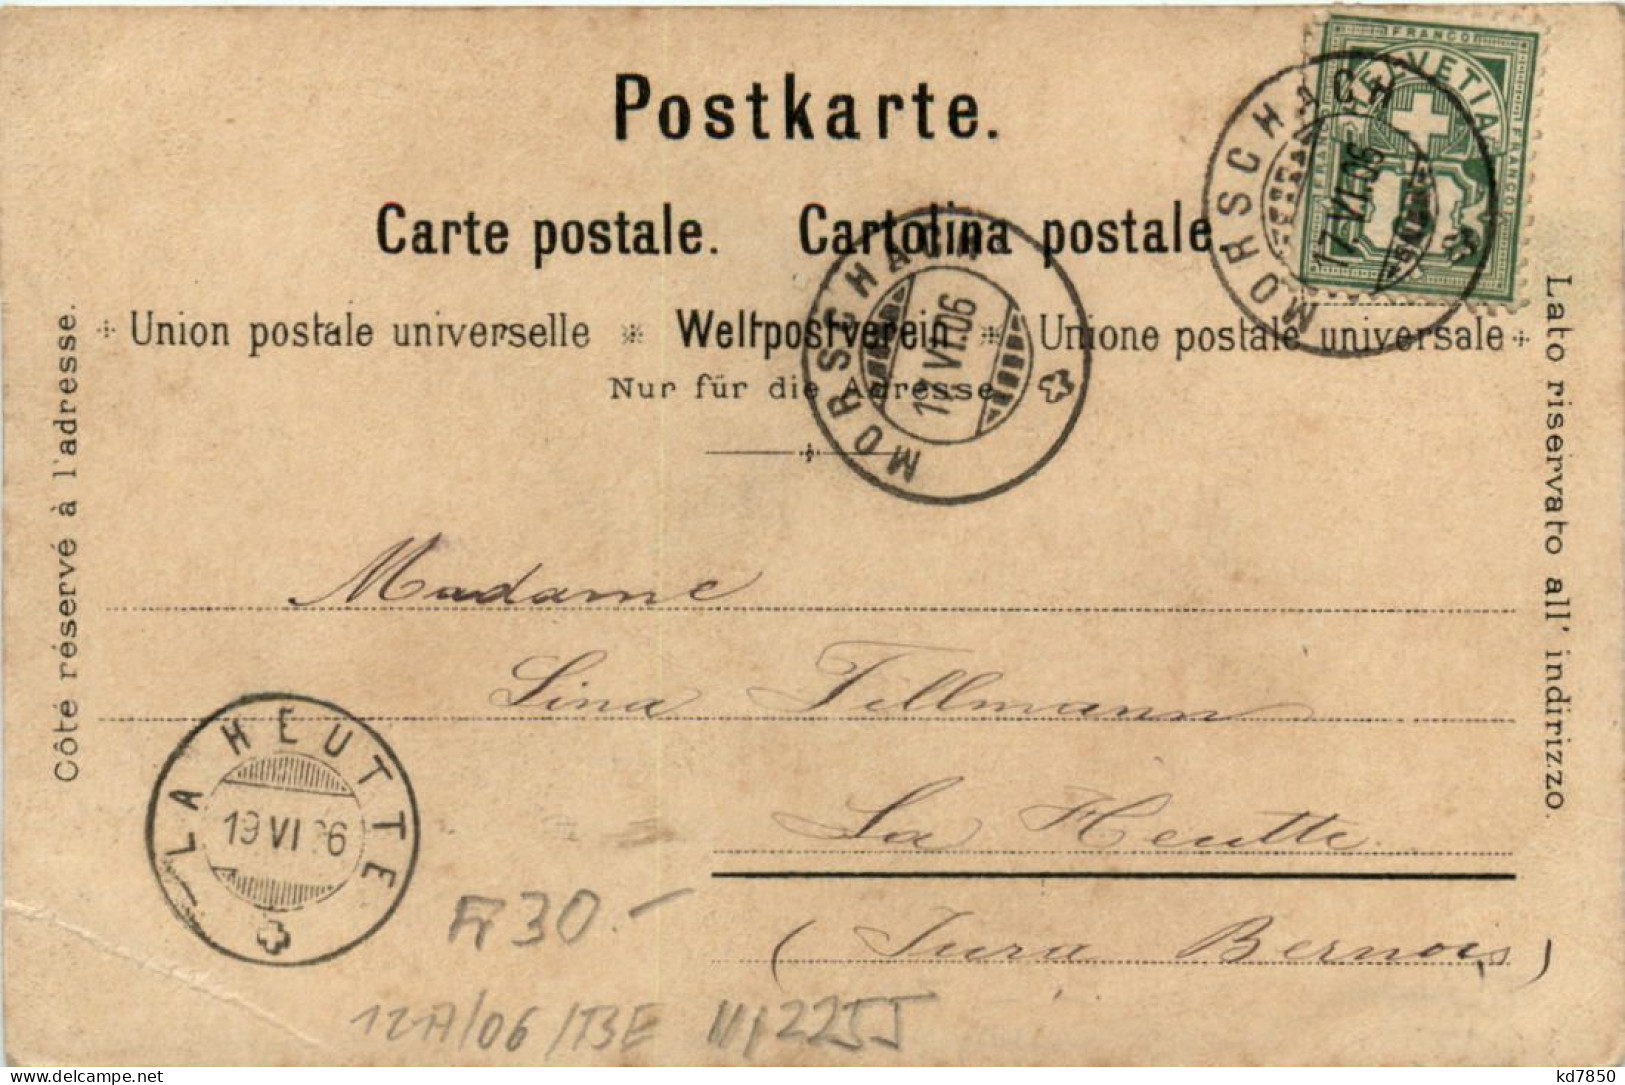 Postkarte.
FRANCO
HELVETIA
FRANCO
FRANCO
MORSCHACH
17.VI.06
Carte postale. Cartolina postale.
MORSCHACH
17.VI.06
Union postale universelle Weltpostverein Unione postale universale
Nur für die Adresse
Côté réservé à l'adresse.
Lato riservato all' indirizzo.
Madame
Lina Tillmann
La Heutte.
(Jura Bernois)
LA HEUTTE
19 VI 06
Fr 30.-
kd7850